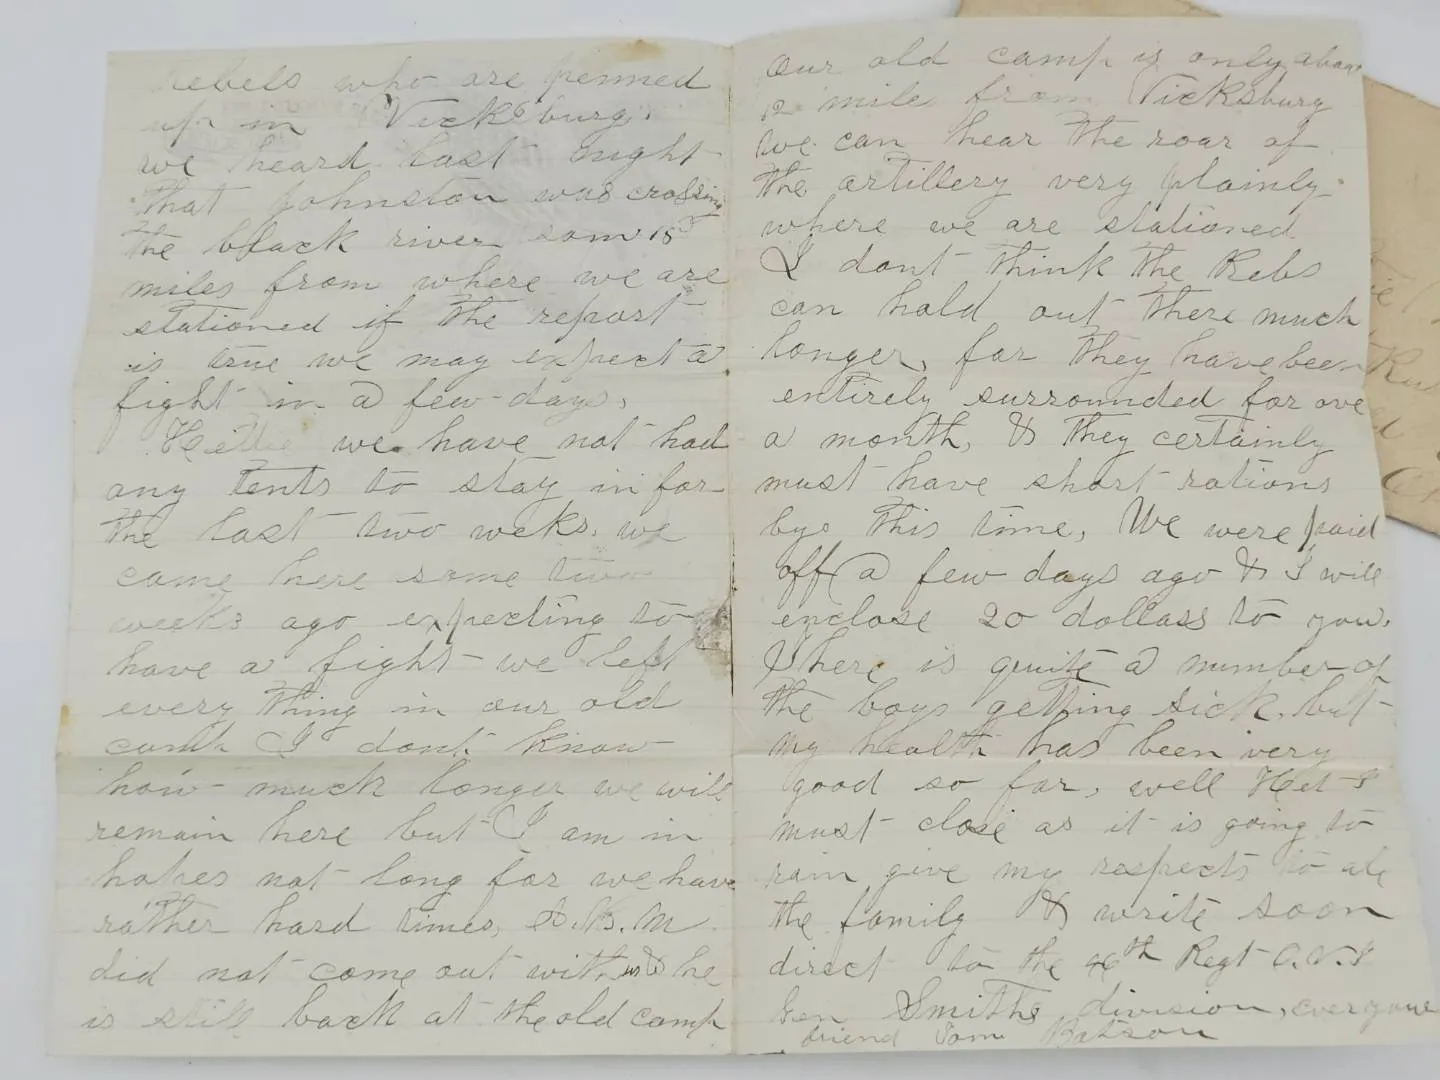 rebels who are penned
up in Vicksburg.
we heard last night
that Johnston was crossing
the black river som 15
miles from where we are
stationed if the report
is true we may expect a
fight in a few days,
Hettie we have not had
any tents to stay in for
the last two weks. we
came here some two
weeks ago expecting to
have a fight we left
every thing in our old
camp I dont know
how much longer we will
remain here but I am in
hopes not long for we have
rather hard times, A.B.M
did not come out with us & he
is still back at the old camp
Our old camp is only about
12 mile from Vicksburg
we can hear the roar of
the artillery very plainly
where we are stationed
I dont think the Rebs
can hold out there much
longer, for they have been
entirely surrounded for ove
a month, & they certainly
must have short rations
bye this time, We were paid
off a few days ago & I will
enclose 20 dollars to you.
There is quite a number of
the boys getting sick, but
my health has been very
good so far, well Het I
must close as it is going to
rain give my respects to all
the family & write soon
direct to the 46th Regt O.V.I
Gen Smiths division, evergone
friend Tom Batson